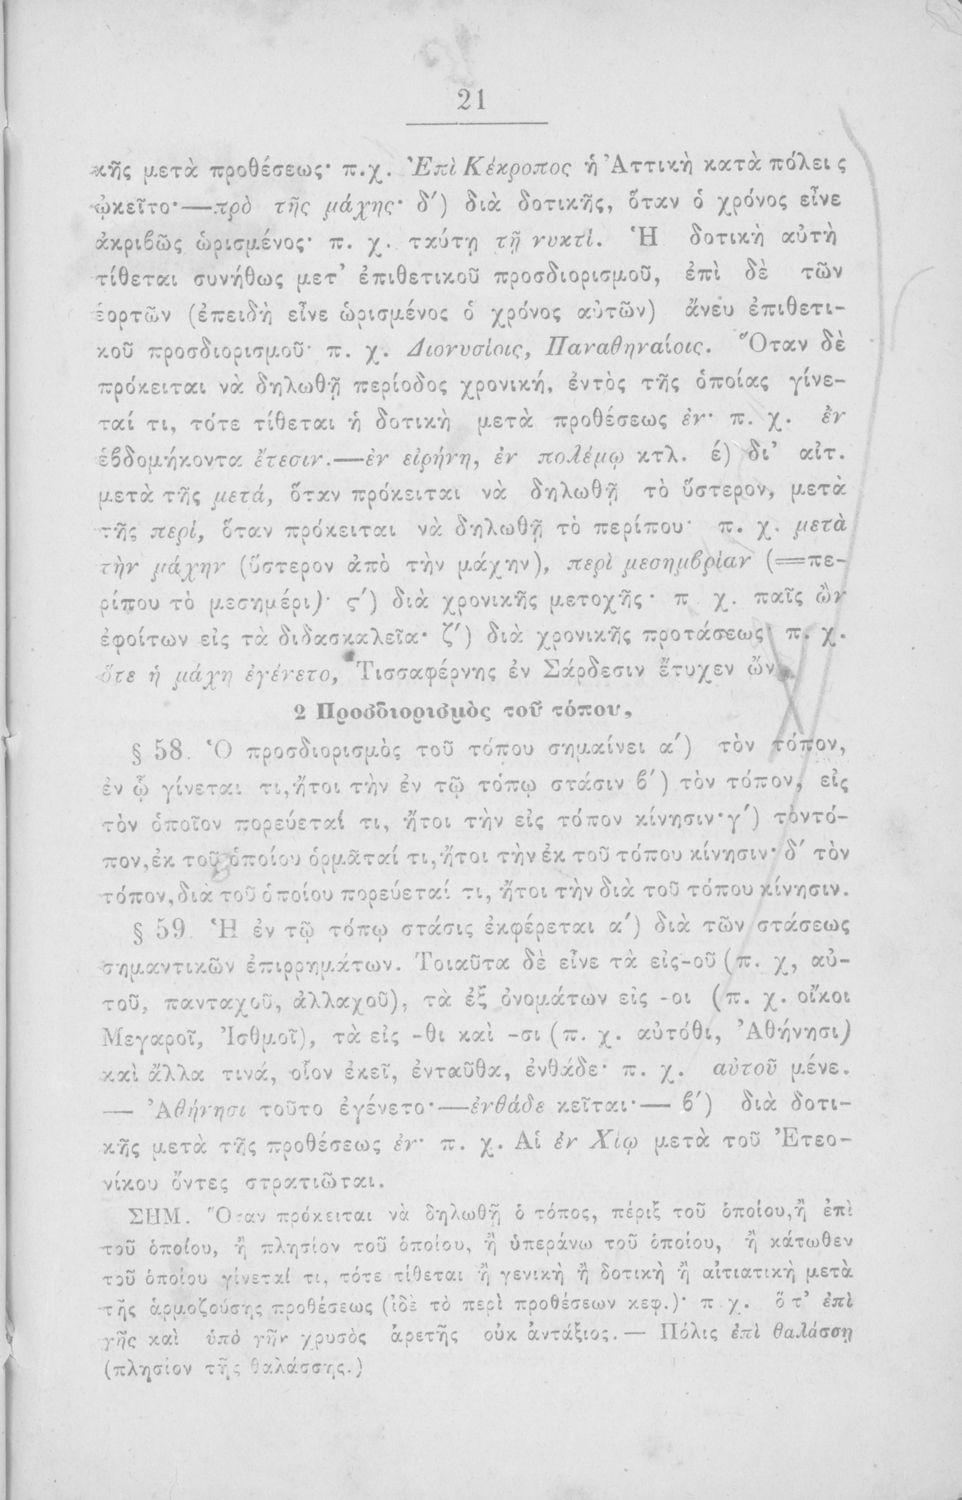 21
κῆς μετὰ προθέσεως· π.χ. Ἐπὶ Κέκροπος ἡ Ἀττικὴ κατὰ πόλεις
ᾠκεῖτο·—πρὸ τῆς μάχης· δ´) διὰ δοτικῆς, ὅταν ὁ χρόνος εἶνε
ἀκριβῶς ὡρισμένος· π. χ. ταύτῃ τῇ νυκτί. Ἡ δοτικὴ αὐτὴ
τίθεται συνήθως μετ᾽ ἐπιθετικοῦ προσδιορισμοῦ, ἐπὶ δὲ τῶν
ἑορτῶν (ἐπειδὴ εἶνε ὡρισμένος ὁ χρόνος αὐτῶν) ἄνευ ἐπιθετι-
κοῦ προσδιορισμοῦ· π. χ. Διονυσίοις, Παναθηναίοις. Ὅταν δὲ
πρόκειται νὰ δηλωθῇ περίοδος χρονική, ἐντὸς τῆς ὁποίας γίνε-
ταί τι, τότε τίθεται ἡ δοτικὴ μετὰ προθέσεως ἐν· π. χ. ἐν
ἑβδομήκοντα ἔτεσιν.—ἐν εἰρήνῃ, ἐν πολέμῳ κτλ. έ) δι᾽ αἰτ.
μετὰ τῆς μετά, ὅταν πρόκειται νὰ δηλωθῇ τὸ ὕστερον, μετὰ
τῆς περί, ὅταν πρόκειται νὰ δηλωθῇ τὸ περίπου· π. χ. μετὰ
τὴν μάχην (ὕστερον ἀπὸ τὴν μάχην), περὶ μεσημβρίαν (=πε-
ρίπου τὸ μεσημέρι)· ς´) διὰ χρονικῆς μετοχῆς· π χ. παῖς ὢν
ἐφοίτων εἰς τὰ διδασκαλεῖα· ζ´) διὰ χρονικῆς προτάσεως π. χ.
ὅτε ἡ μάχη ἐγένετο, Τισσαφέρνης ἐν Σάρδεσιν ἔτυχεν ὤν.
2 Προσδιορισμὸς τοῦ τόπου,
§ 58. Ὁ προσδιορισμὸς τοῦ τόπου σημαίνει α´) τὸν τόπον,
ἐν ᾧ γίνεται τι, ἤτοι τὴν ἐν τῷ τόπῳ στάσιν β´) τὸν τόπον, εἰς
τὸν ὁποῖον πορεύεταί τι, ἤτοι τὴν εἰς τόπον κίνησιν· γ´) τὸντό-
πον, ἐκ τοῦ ὁποίου ὁρμᾶταί τι, ἤτοι τὴν ἐκ τοῦ τόπου κίνησιν· δ´ τὸν
τόπον, διὰ τοῦ ὁποίου πορεύεταί τι, ἤτοι τὴν διὰ τοῦ τόπου κίνησιν.
§ 59 Ἡ ἐν τῷ τόπῳ στάσις ἐκφέρεται α´) διὰ τῶν στάσεως
σημαντικῶν ἐπιρρημάτων. Τοιαῦτα δὲ εἶνε τὰ εἰς-οῦ (π. χ, αὐ-
τοῦ, πανταχοῦ, ἀλλαχοῦ), τὰ ἐξ ὀνομάτων εἰς -οι (π. χ. οἴκοι
Μεγαροῖ, Ἰσθμοῖ), τὰ εἰς -θι καὶ -σι (π. χ. αὐτόθι, Ἀθήνησι)
καὶ ἄλλα τινά, οἷον ἐκεῖ, ἐνταῦθα, ἐνθάδε· π. χ. αὐτοῦ μένε.
— Ἀθήνησι τοῦτο ἐγένετο·—ἐνθάδε κεῖται·— β´) διὰ δοτι-
κῆς μετὰ τῆς προθέσεως ἐν· π. χ. Αἱ ἐν Χίῳ μετὰ τοῦ Ἐτεο-
νίκου ὄντες στρατιῶται.
ΣΗΜ. Ὅταν πρόκειται νὰ δηλωθῇ ὁ τόπος, πέριξ τοῦ ὁποίου, ἢ ἐπὶ
τοῦ ὁποίου, ἢ πλησίον τοῦ ὁποίου, ἢ ὑπεράνω τοῦ ὁποίου, ἢ κάτωθεν
τοῦ ὁποίου γίνεταί τι, τότε τίθεται ἢ γενικὴ ἢ δοτικὴ ἢ αἰτιατικὴ μετὰ
τῆς ἁρμοζούσης προθέσεως (ἰδὲ τὸ περὶ προθέσεων κεφ.)· π χ. ὅ τ᾽ ἐπὶ
γῆς καὶ ὑπὸ γῆν χρυσὸς ἀρετῆς οὐκ ἀντάξιος.— Πόλις ἐπὶ θαλάσσῃ
(πλησίον τῆς θαλάσσης.)